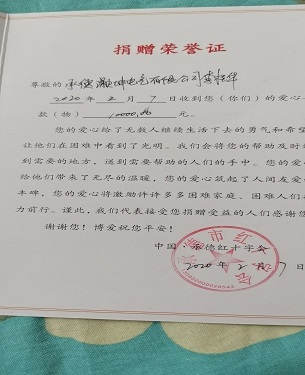 捐赠荣誉证
尊敬的 承德 坤电 有限公司李桂华
2020 年 2 月 7 日收到您(你们)的爱心
款(物) 10000.00 元。
您的爱心给了无数人继续生活下去的勇气和希望
让他们在困难中看到了光明。我们会将您的帮助及时
到需要的地方,送到需要帮助的人们的手中。您的爱
给他们带来了无尽的温暖,您的爱心筑起了人间友爱
丰碑,您的爱心将激励许许多多困难家庭、困难人们
力前行。谨此,我们代表接受您捐赠受益的人们感谢您
谢谢您!博爱祝您平安!
中国·承德红十字会
2020 年 2 月 7 日
市红